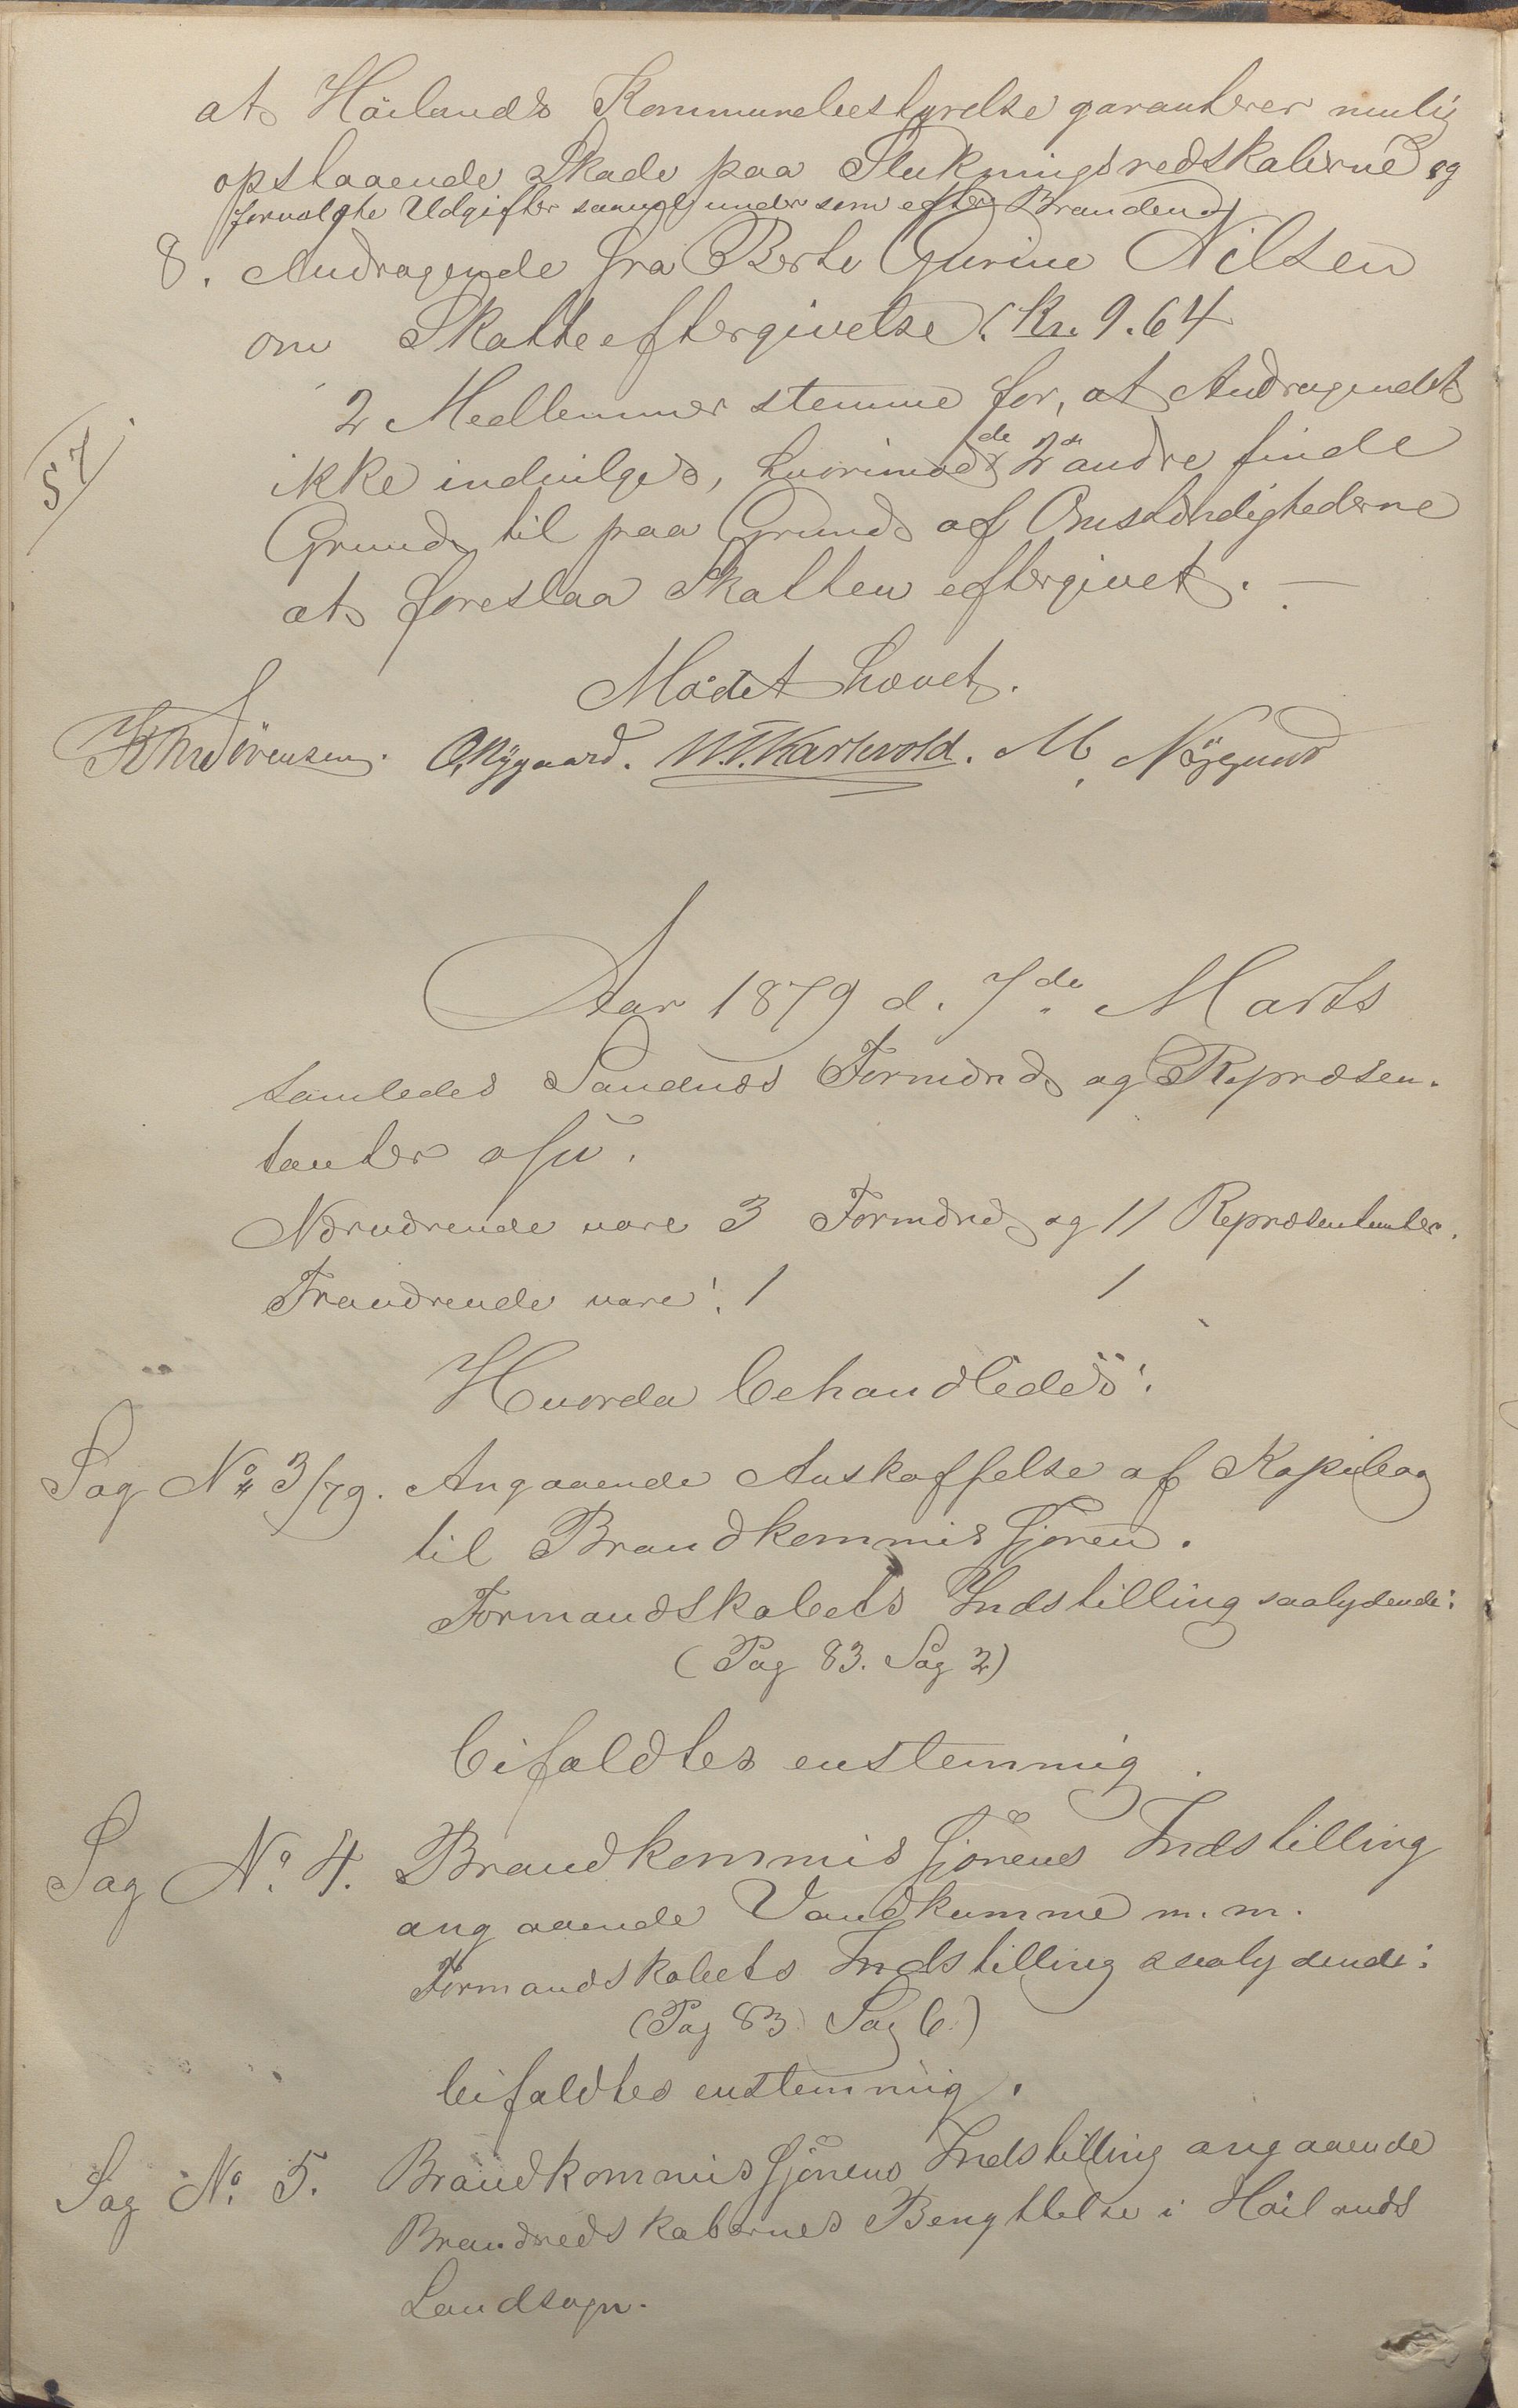 at Höilands Kommunebestyrelse garanterer mulig
opstaaende Skade paa Slukningsredskaberne og
forvolgte Udgifter saavel under som efter Branden.
8. Andragende fra Berte Gurine Nilsen
om Skatteeftergivelse. Kr. 9.64
2 Medlemmer stemme for, at Andragendet
57
ikke indvilges, hvorimod de 2de andre finde
Grund til paa Grund af Omstændighederne
at foreslaa Skatten eftergivet. —
Mödet hævet.
Sörensen. O. Rygaard. W. T. Kartevold. M. Nögsund
Aar 1879 d. 7de Marts
samledes Sandnæs Formænd og Repræsen-
tanter osv.
Nærværende vare 3 Formænd og 11 Repræsentanter.
Fraværende vare: 1 1
Hvorda behandledes:
Sag No 3/79. Angaaende Anskaffelse af Kopibog
til Brandkommissjonen.
Formandskabets Indstilling saalydende:
(Pag 83. Sag 2)
bifaldtes enstemmig.
Sag No. 4. Brandkommissjonens Indstilling
angaaende Vandkumme m. m.
Formandskabets Indstilling saalydende:
(Pag 83 Sag 6.)
bifaldtes enstemmig.
Sag No. 5. Brandkommissjonens Indstilling angaaende
Brandredskabernes Benyttelse i Höilands
Landsogn.